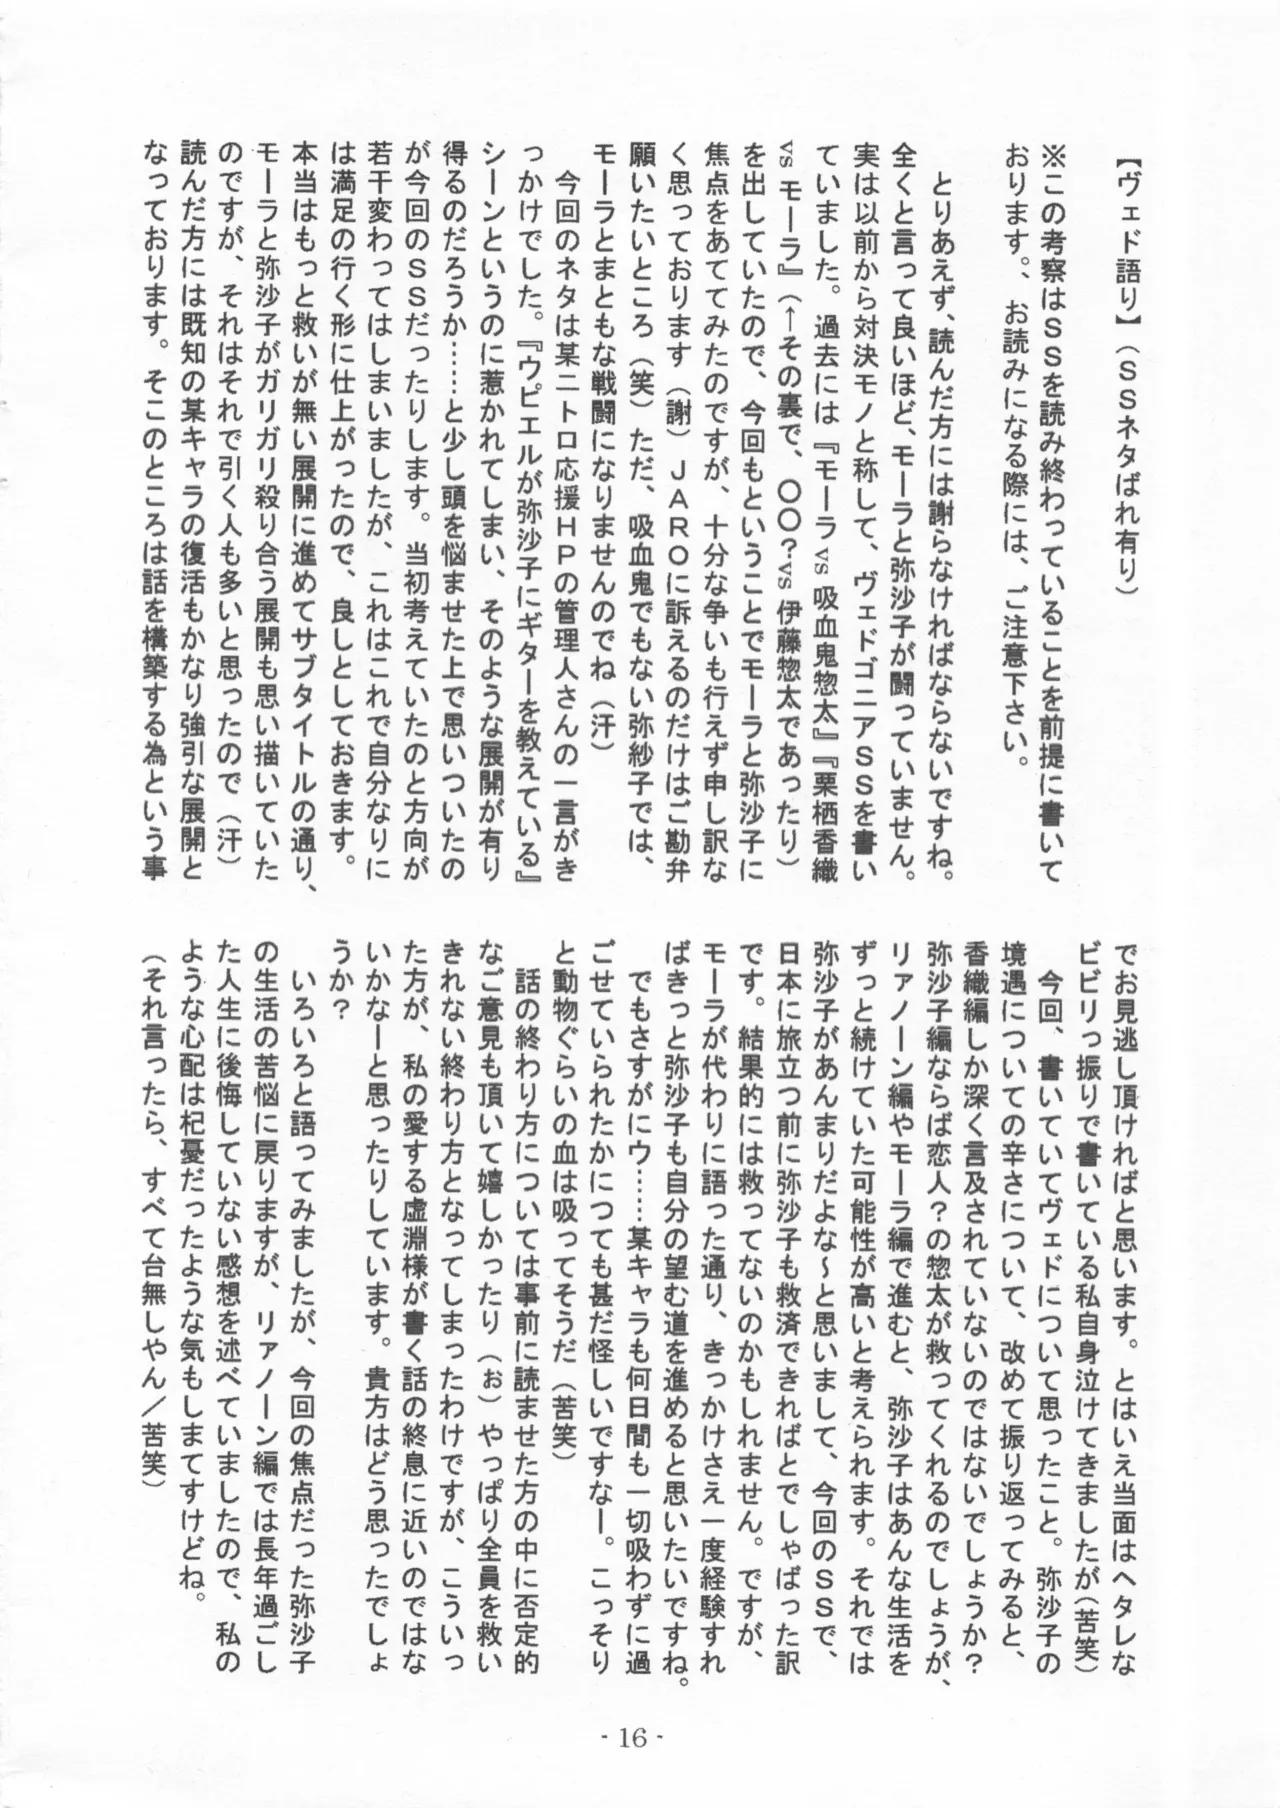 【ヴェド語り】(SSネタばれ有り)
※この考察はSSを読み終わっていることを前提に書いて
おります。、お読みになる際には、ご注意下さい。
とりあえず、読んだ方には謝らなければならないですね。
全くと言って良いほど、モーラと弥沙子が闘っていません。
実は以前から対決モノと称して、ヴェドゴニアSSを書い
ていました。過去には『モーラvs吸血鬼惣太』『栗栖香織
vsモーラ』(←その裏で、○○?vs伊藤惣太であったり)
を出していたので、今回もということでモーラと弥沙子に
焦点をあててみたのですが、十分な争いも行えず申し訳な
く思っております(謝)JAROに訴えるのだけはご勘弁
願いたいところ(笑)ただ、吸血鬼でもない弥紗子では、
モーラとまともな戦闘になりませんのでね(汗)
今回のネタは某ニトロ応援HPの管理人さんの一言がき
っかけでした。『ウピエルが弥沙子にギターを教えている』
シーンというのに惹かれてしまい、そのような展開が有り
得るのだろうか……と少し頭を悩ませた上で思いついたの
が今回のSSだったりします。当初考えていたのと方向が
若干変わってはしまいましたが、これはこれで自分なりに
は満足の行く形に仕上がったので、良しとしておきます。
本当はもっと救いが無い展開に進めてサブタイトルの通り、
モーラと弥沙子がガリガリ殺り合う展開も思い描いていた
のですが、それはそれで引く人も多いと思ったので(汗)
読んだ方には既知の某キャラの復活もかなり強引な展開と
なっております。そこのところは話を構築する為という事
でお見逃し頂ければと思います。とはいえ当面はヘタレな
ビビリっ振りで書いている私自身泣けてきましたが(苦笑)
今回、書いていてヴェドについて思ったこと。弥沙子の
境遇についての辛さについて、改めて振り返ってみると、
香織編しか深く言及されていないのではないでしょうか?
弥沙子編ならば恋人?の惣太が救ってくれるのでしょうが、
リァノーン編やモーラ編で進むと、弥沙子はあんな生活を
ずっと続けていた可能性が高いと考えられます。それでは
弥沙子があんまりだよな〜と思いまして、今回のSSで、
日本に旅立つ前に弥沙子も救済できればとでしゃばった訳
です。結果的には救ってないのかもしれません。ですが、
モーラが代わりに語った通り、きっかけさえ一度経験すれ
ばきっと弥沙子も自分の望む道を進めると思いたいですね。
でもさすがにウ……某キャラも何日間も一切吸わずに過
ごせていられたかにつても甚だ怪しいですなー。こっそり
と動物ぐらいの血は吸ってそうだ(苦笑)
話の終わり方については事前に読ませた方の中に否定的
なご意見も頂いて嬉しかったり(ぉ)やっぱり全員を救い
きれない終わり方となってしまったわけですが、こういっ
た方が、私の愛する虚淵様が書く話の終息に近いのではな
いかなーと思ったりしています。貴方はどう思ったでしょ
うか?
いろいろと語ってみましたが、今回の焦点だった弥沙子
の生活の苦悩に戻りますが、リァノーン編では長年過ごし
た人生に後悔していない感想を述べていましたので、私の
ような心配は杞憂だったような気もしまてすけどね。
(それ言ったら、すべて台無しやん/苦笑)
- 16 -